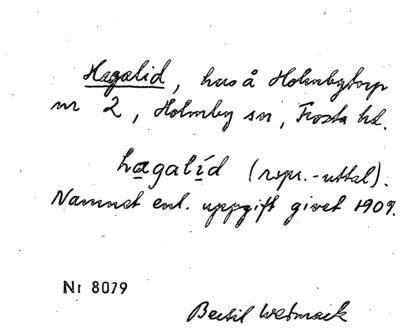 Hagalid, hus å Holmbytorp
nr 2, Holmby sn, Frosta hd.
hagalíd (rspr.-uttal).
Namnet enl. uppgift givet 1909.
Nr 8079
Bertil Wetmark